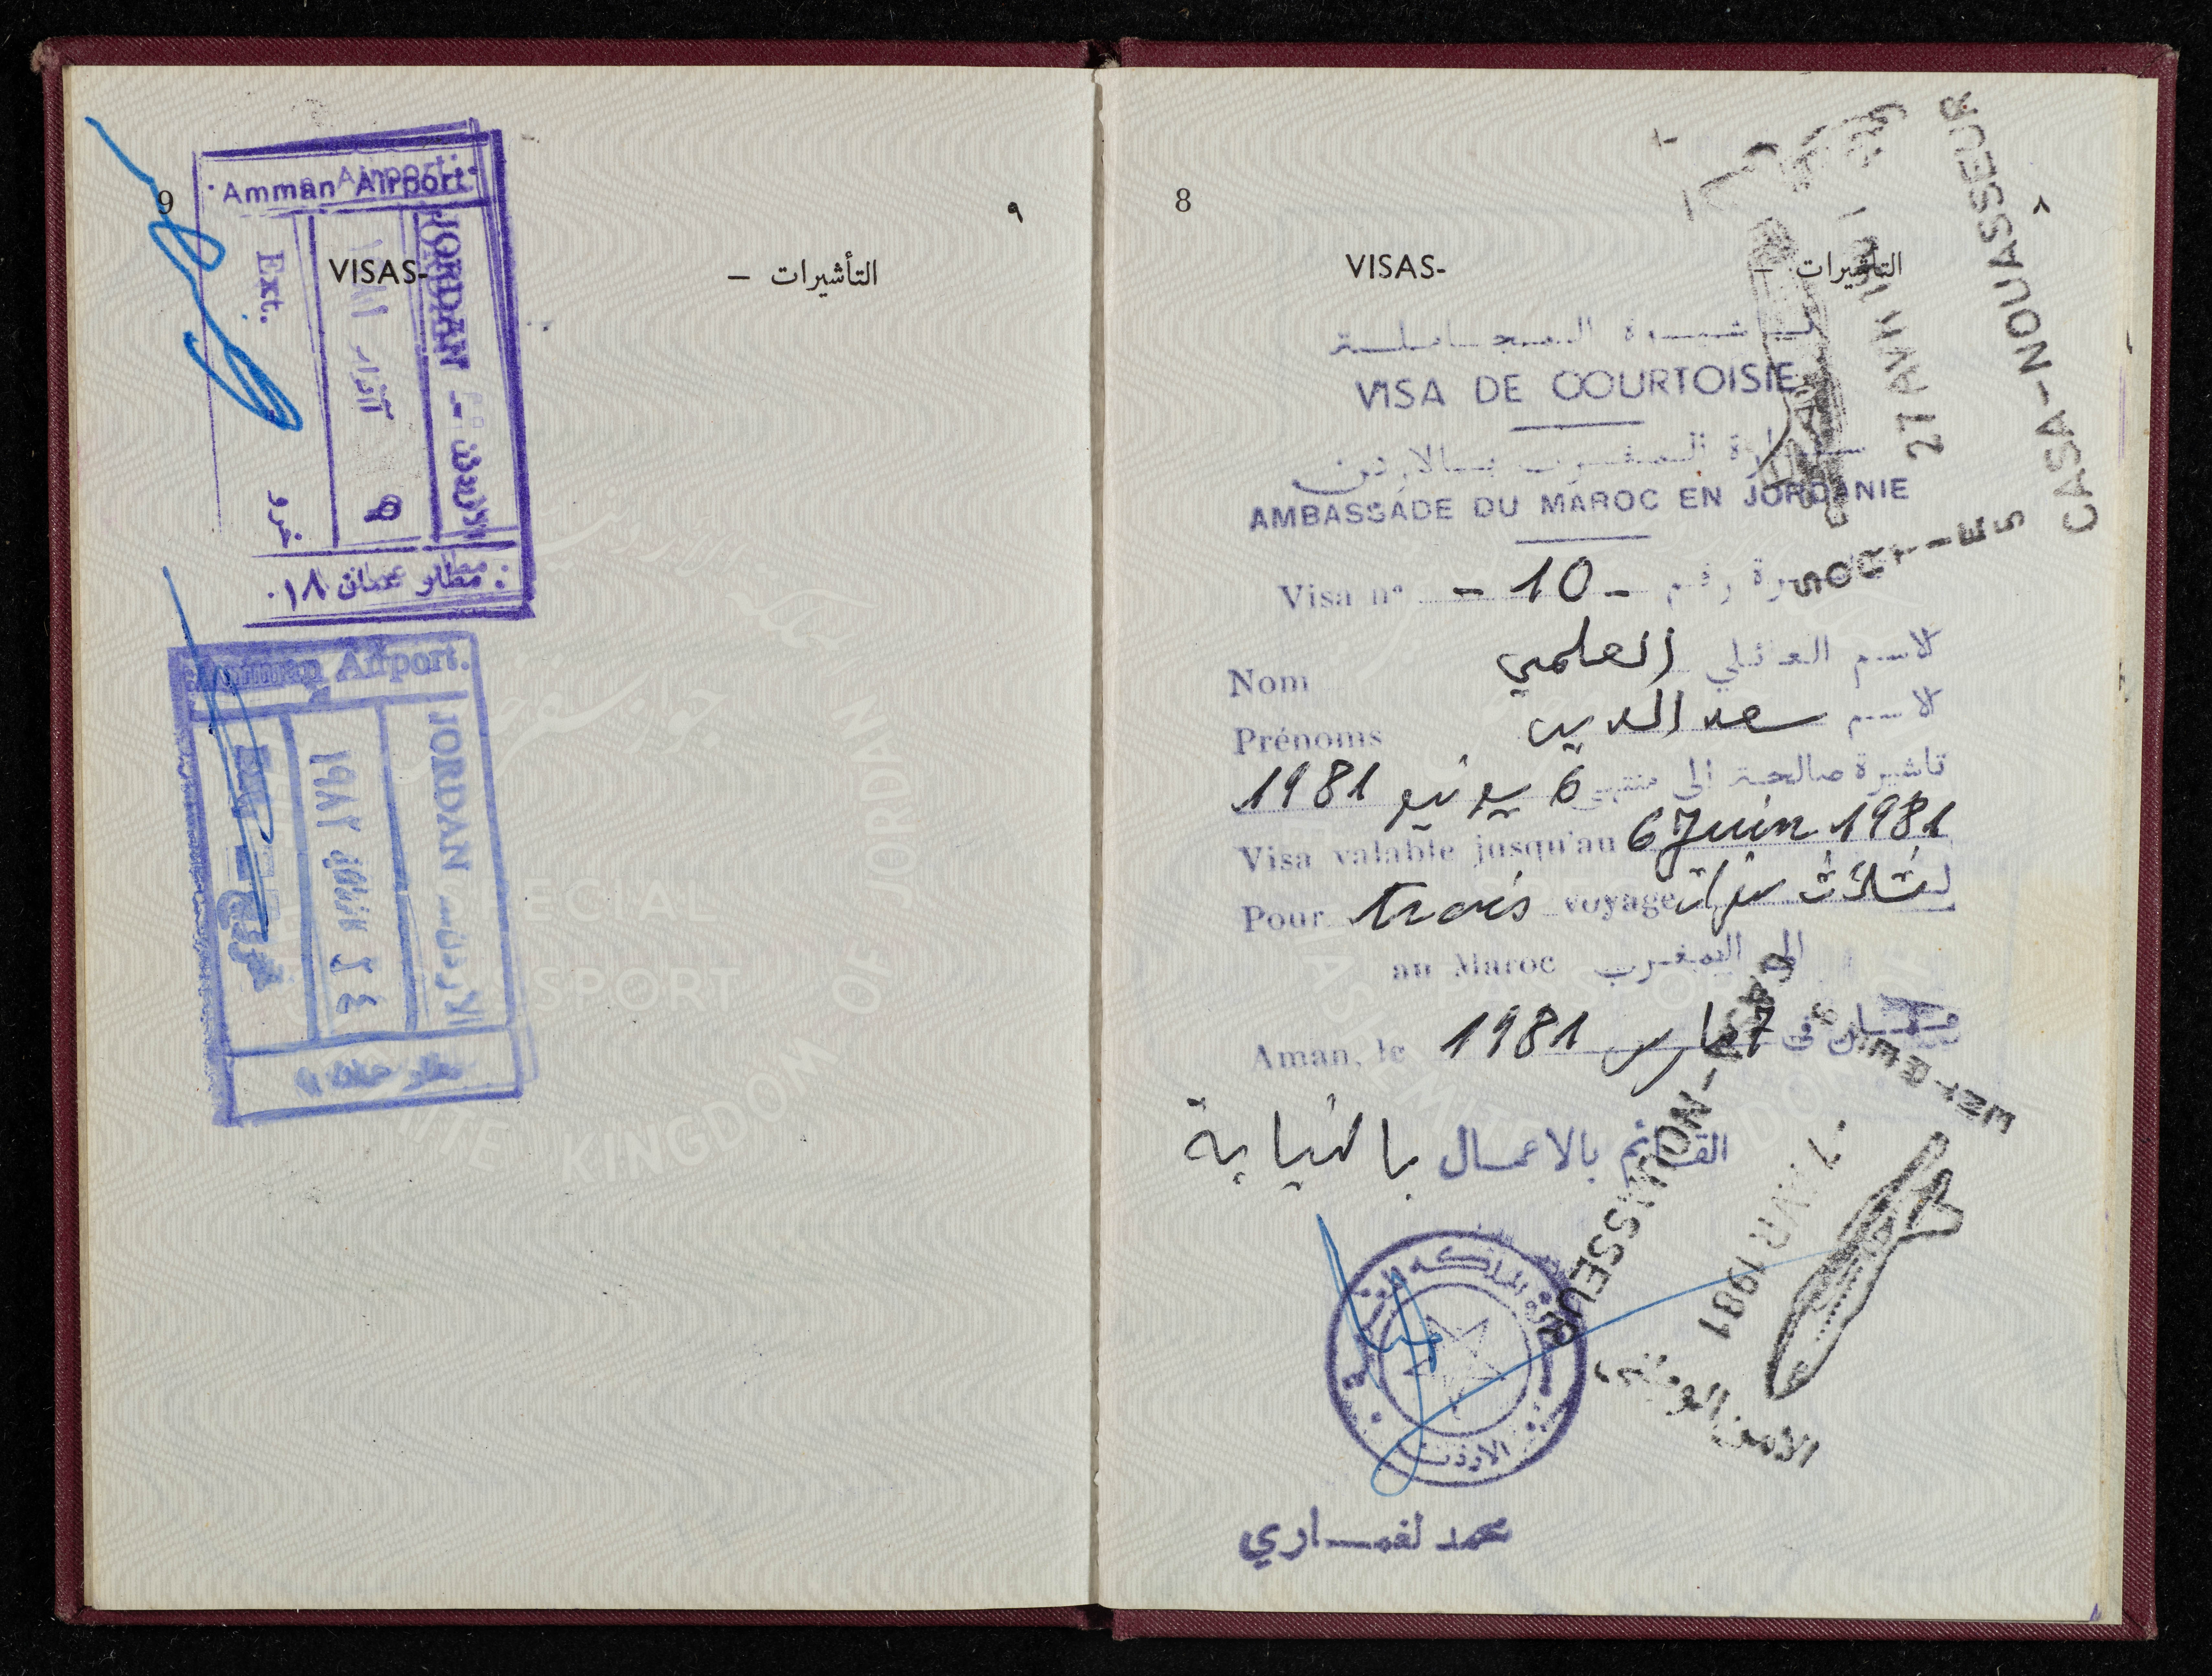 8
٨
VISAS-
التأشيرات –
VISA DE COURTOISIE
سفارة المغرب بالاردن
AMBASSADE DU MAROC EN JORDANIE
Visa n° - 10 - رقم
Nom العلمي الاسم العائلي
Prénoms سعد الدين الاسم
تاشيرة صالحة الى منتهى 6 يونيو 1981
Visa valable jusqu'au 6 Juin 1981
Pour trois voyage لثلاث سفرات
au Maroc الى المغرب
Aman, le 1981 مارس 7 في
القائم بالاعمال بالنيابة
الاردن
محمد لغمـاري
CASA-NOUASSEUR
27 AVR 1981
SORTIES
CASA-NOUASSEUR
ENTREES
7 AVR 1981
الامن الوطني
9
٩
VISAS-
التأشيرات –
Amman Airport
JORDAN - الاردن
آذار
Ext.
مطار عمان ٠١٨
Amman Airport.
JORDAN الاردن
١٩٨٢
٢٤
خروج
HASHEMITE KINGDOM OF JORDAN
SPECIAL
PASSPORT